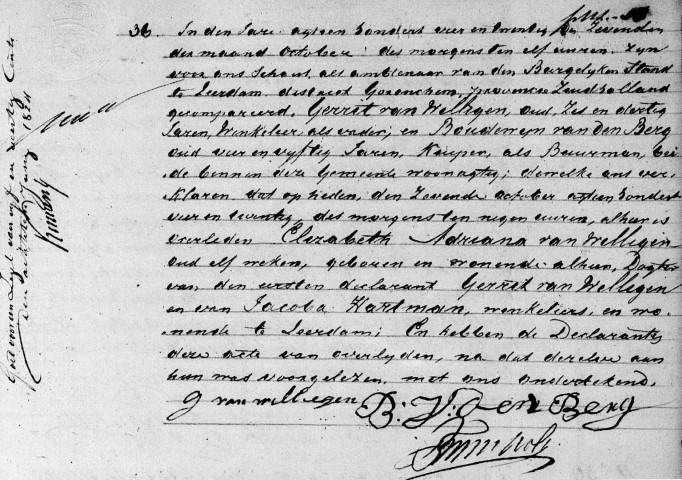 36. In den Jare agtien honderd vier en twentig den Zevenden
der maand october des morgens ten elf uuren, zyn
voor ons Schout, als amblenaar van den Burgelyken Stand
te Leerdam, district Gorinchem, provincie Zuidholland
gecompareerd, Gerrit van Welligen, oud, Zes en dertig
Jaren, Winkelier als vader; en Boudewyn van den Berg
oud vier en vyftig Jaren, Kuiper, als Buurman, bei
de binnen dese Gemeente woonagtig; dewelke ons ver
klaren dat op heden, den Zevende october agtien honderd
vier en twentig, des morgens ten negen uuren, alhier is
overleden Elizabeth Adriana van Welligen
oud elf weken, geboren en wonende alhier, Dogter
van den eersten declarant Gerrit van Welligen
en van Jacoba Hartman, winkeliers, en wo-
nende te Leerdam; En hebben de Declaranten
dese acte van overlyden, na dat deselve aan
hun was voorgelezen, met ons onderteekend.
G van Welligen B: V: den Berg